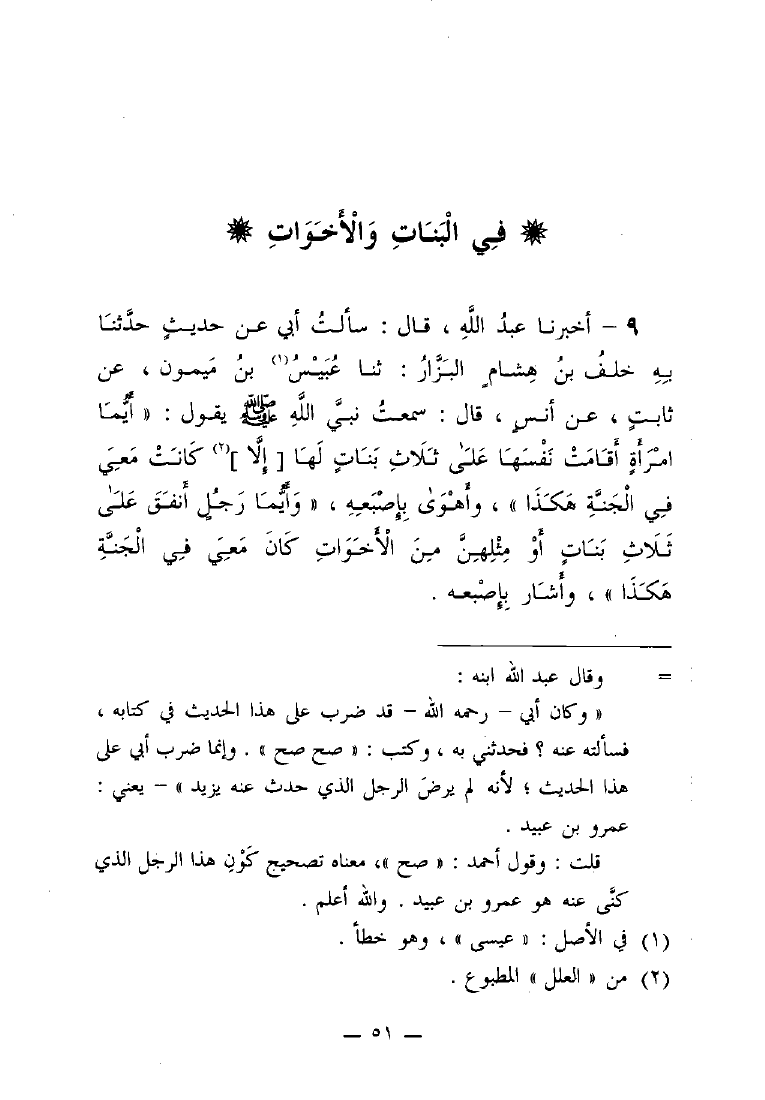 ❋ فِي الْبَنَاتِ وَالْأَخَوَاتِ ❋
٩ – أخبرنا عبدُ اللَّهِ ، قال : سألتُ أبي عن حديثٍ حدَّثنا
بِهِ خلفُ بنُ هِشامٍ البَزَّارُ : ثنا عُبَيْسُ(١) بنُ مَيمون ، عن
ثابتٍ ، عن أنسٍ ، قال : سمعتُ نبيَّ اللَّهِ ﷺ يقول : « أَيُّمَا
امْرَأَةٍ أَقَامَتْ نَفْسَهَا عَلَى ثَلَاثِ بَنَاتٍ لَهَا [ إِلَّا ](٢) كَانَتْ مَعِيَ
فِي الْجَنَّةِ هَكَذَا » ، وأَهْوَى بِإِصْبَعِهِ ، « وَأَيُّمَا رَجُلٍ أَنفَقَ عَلَى
ثَلَاثِ بَنَاتٍ أَوْ مِثْلِهِنَّ مِنَ الْأَخَوَاتِ كَانَ مَعِيَ فِي الْجَنَّةِ
هَكَذَا » ، وأَشَار بِإِصْبَعه .
= وقال عبد الله ابنه :
« وكان أبي – رحمه الله – قد ضرب على هذا الحديث في كتابه ،
فسألته عنه ؟ فحدثني به ، وكتب : « صح صح » . وإنما ضرب أبي على
هذا الحديث ؛ لأنه لم يرضَ الرجل الذي حدث عنه يزيد » – يعني :
عمرو بن عبيد .
قلت : وقول أحمد : « صح »، معناه تصحيح كَوْنِ هذا الرجل الذي
كنَّى عنه هو عمرو بن عبيد . والله أعلم .
(١) في الأصل : « عيسى » ، وهو خطأ .
(٢) من « العلل » المطبوع .
– ٥١ –